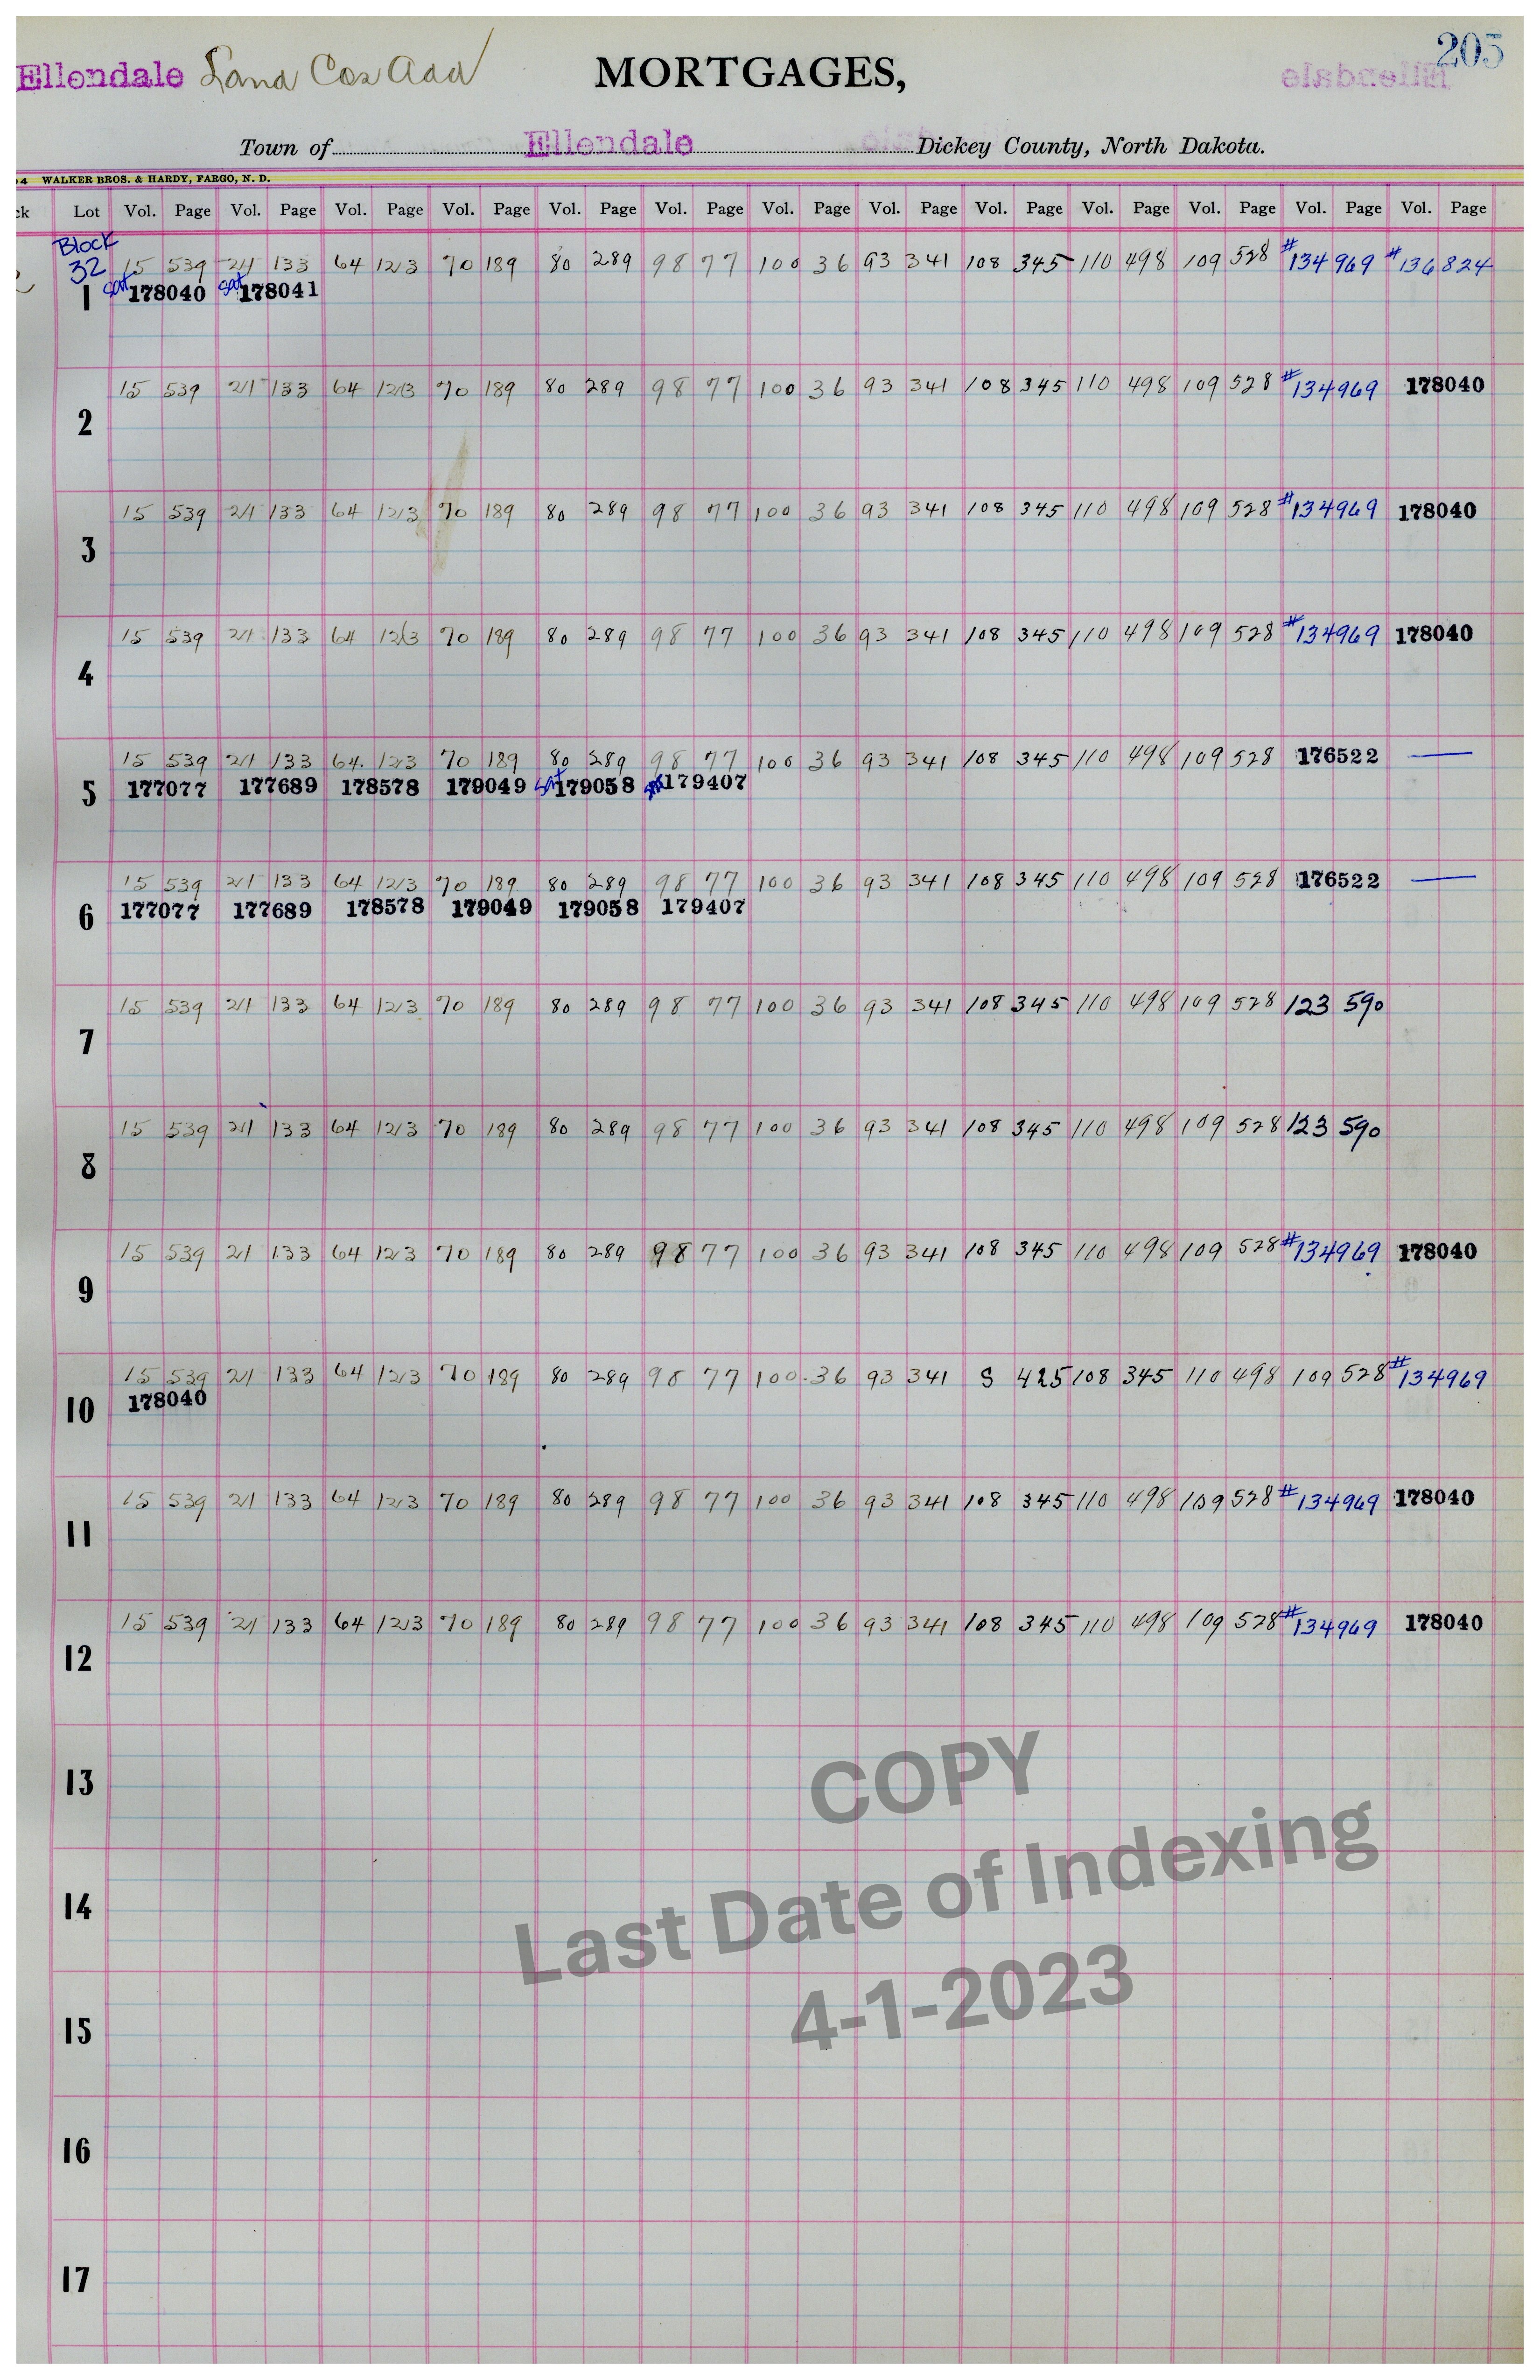 205
Ellendale Land Cos Add
MORTGAGES,
Town of Ellendale Dickey County, North Dakota.
WALKER BROS. & HARDY, FARGO, N. D.
Lot Vol. Page Vol. Page Vol. Page Vol. Page Vol. Page Vol. Page Vol. Page Vol. Page Vol. Page Vol. Page Vol. Page Vol. Page Vol. Page
Block
32 15 539 21 133 64 123 70 189 80 289 98 77 100 36 93 341 108 345 110 498 109 528 #134969 #136824
1 sat 178040 sat 178041
15 539 21 133 64 123 70 189 80 289 98 77 100 36 93 341 108 345 110 498 109 528 #134969 178040
2
15 539 21 133 64 123 70 189 80 289 98 77 100 36 93 341 108 345 110 498 109 528 #134969 178040
3
15 539 21 133 64 123 70 189 80 289 98 77 100 36 93 341 108 345 110 498 109 528 #134969 178040
4
15 539 21 133 64 123 70 189 80 289 98 77 100 36 93 341 108 345 110 498 109 528 176522 —
5 177077 177689 178578 179049 sat 179058 sat 179407
15 539 21 133 64 123 70 189 80 289 98 77 100 36 93 341 108 345 110 498 109 528 176522 —
6 177077 177689 178578 179049 179058 179407
15 539 21 133 64 123 70 189 80 289 98 77 100 36 93 341 108 345 110 498 109 528 123 590
7
15 539 21 133 64 123 70 189 80 289 98 77 100 36 93 341 108 345 110 498 109 528 123 590
8
15 539 21 133 64 123 70 189 80 289 98 77 100 36 93 341 108 345 110 498 109 528 #134969 178040
9
15 539 21 133 64 123 70 189 80 289 98 77 100 36 93 341 S 425 108 345 110 498 109 528 #134969
10 178040
15 539 21 133 64 123 70 189 80 289 98 77 100 36 93 341 108 345 110 498 109 528 #134969 178040
11
15 539 21 133 64 123 70 189 80 289 98 77 100 36 93 341 108 345 110 498 109 528 #134969 178040
12
13
14
15
16
17
COPY
Last Date of Indexing
4-1-2023